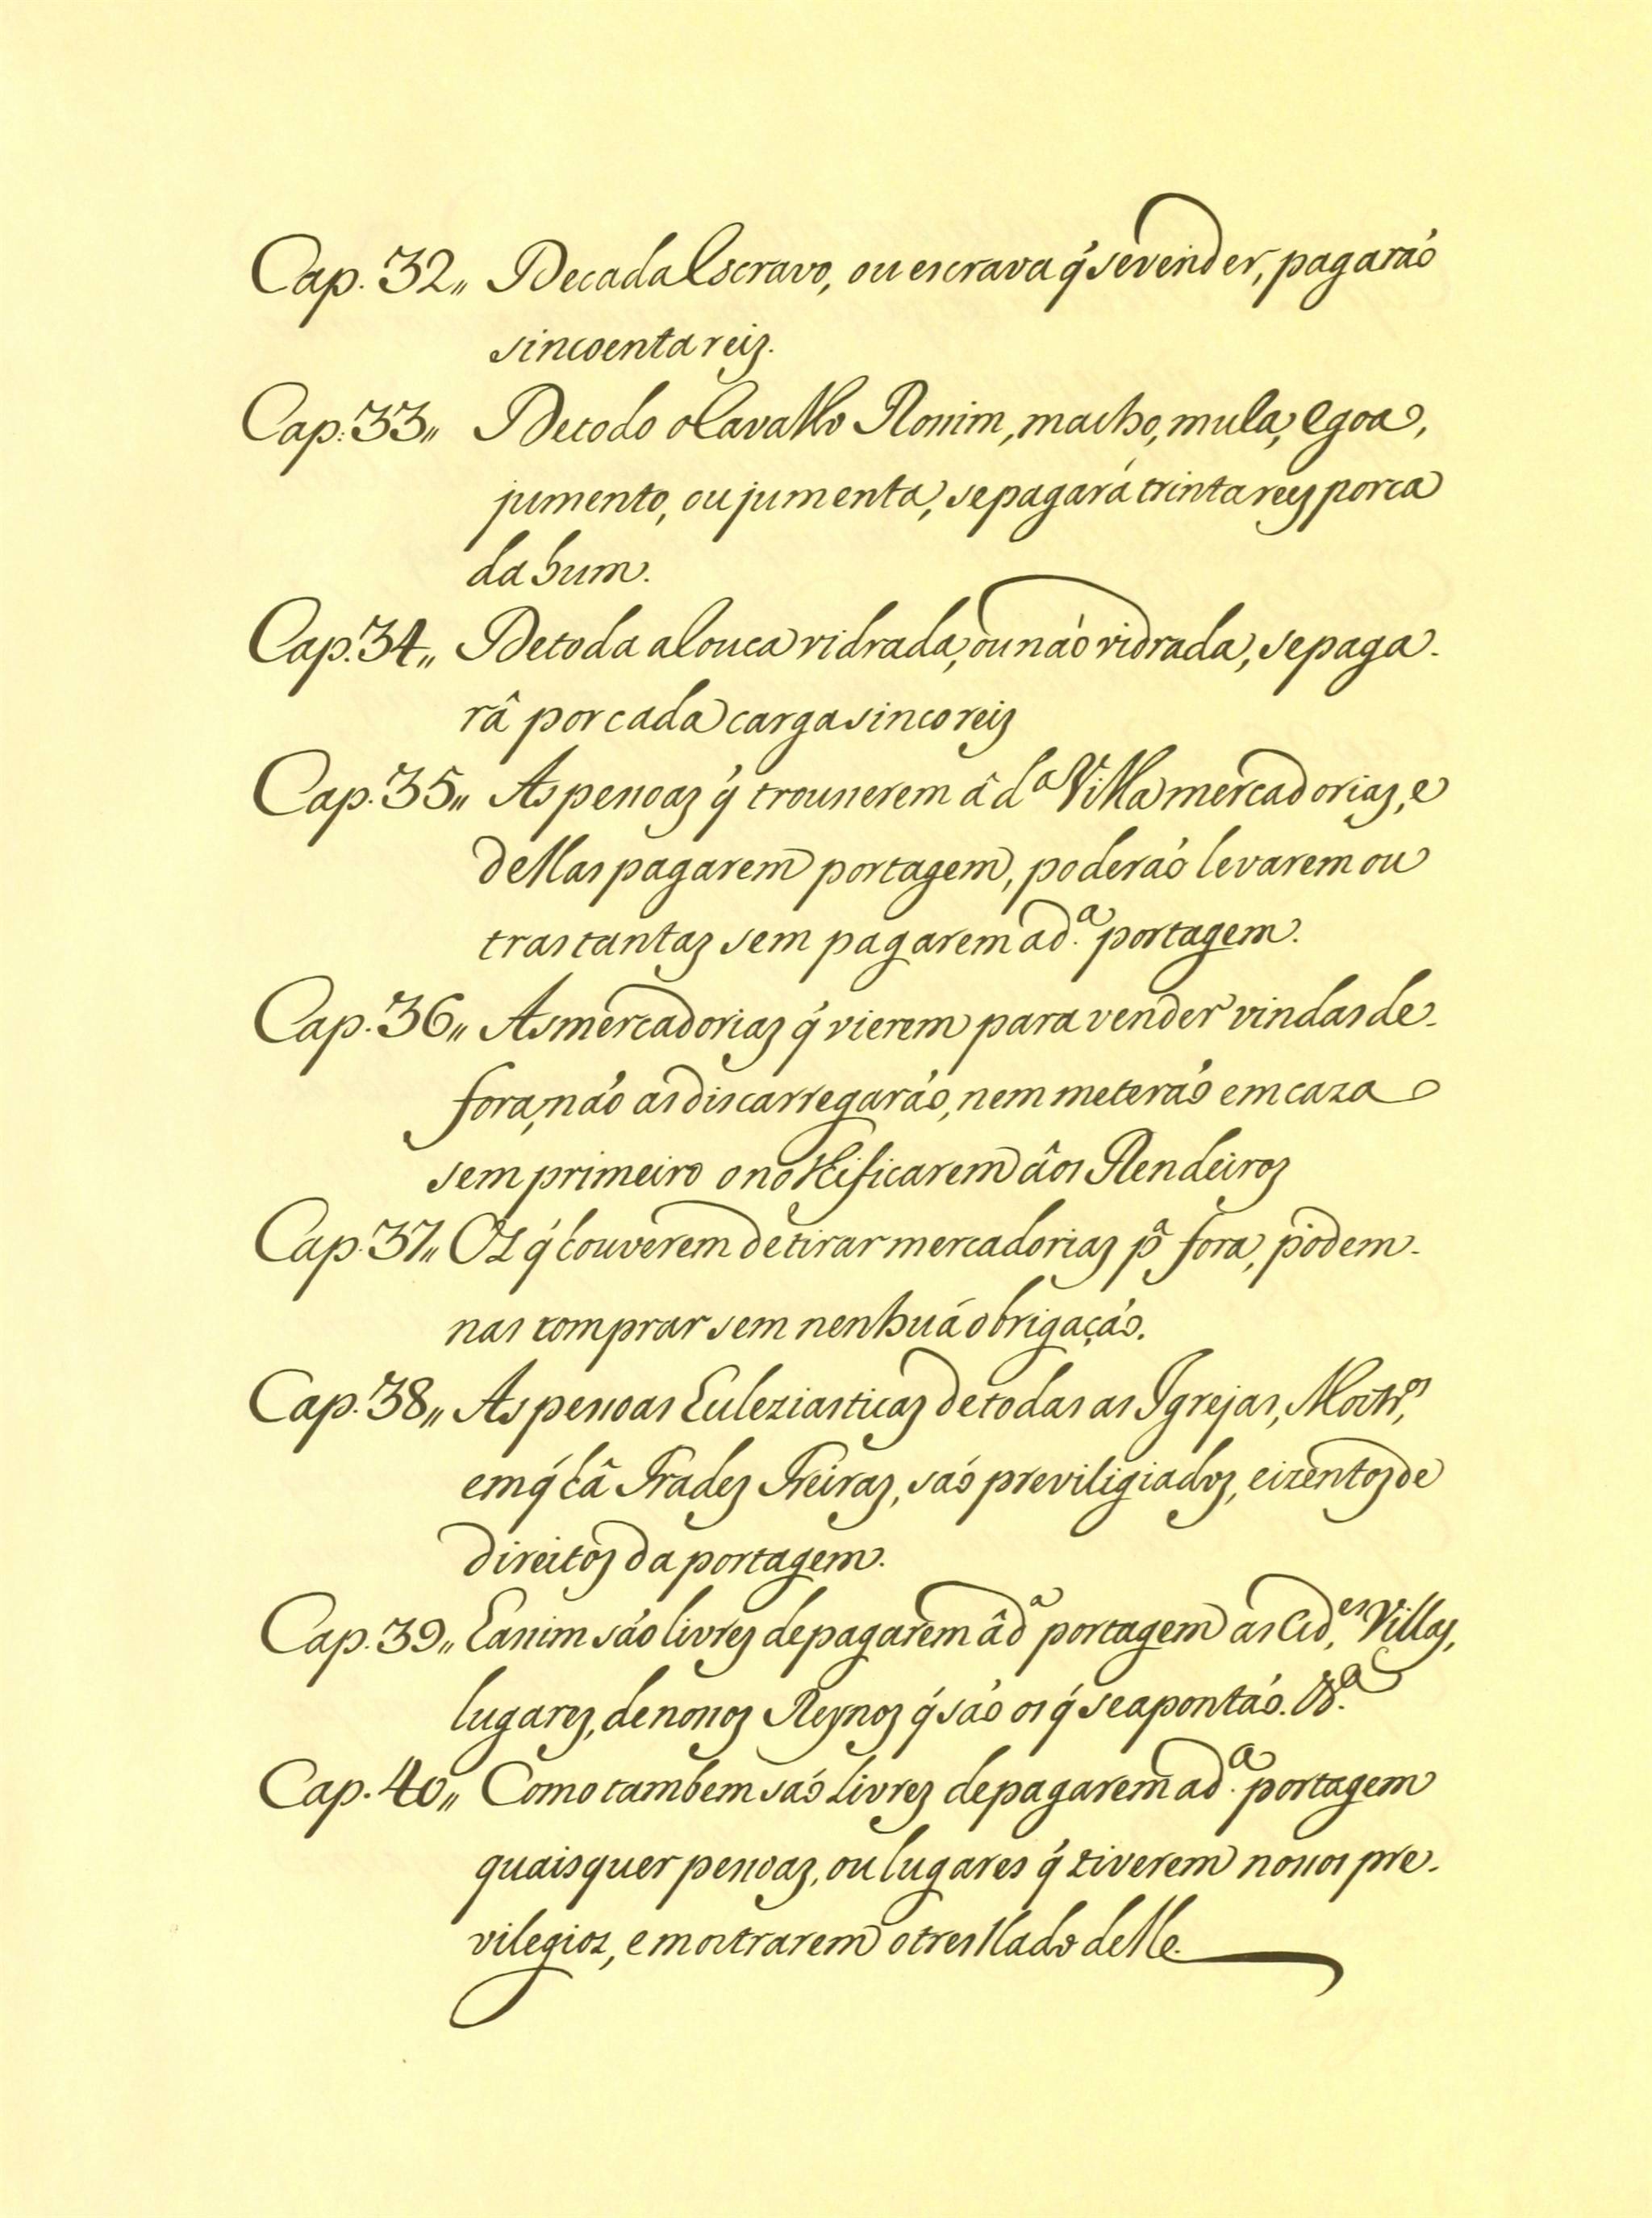 Cap. 32,, De cada Escravo, ou escrava q́ se vender, pagaráo
sincoenta reis.
Cap. 33,, De todo o Cavallo Rossim, macho, mula, Egoa,
jumento, ou jumenta, se pagará trinta reis por ca
da hum.
Cap. 34,, De toda a louca vidrada, ou náo vidrada, se paga-
râ por cada carga sinco reis
Cap. 35,, As pessoas q́ trouuerem â dª Villa mercadorias, e
dellas pagarem portagem, poderáo levarem ou
tras tantas sem pagarem a d.ª portagem.
Cap. 36,, As mercadorias q́ vierem para vender vindas de-
fora, náo as discarregaráo, nem meteráo em caza
sem primeiro o nottificarem âos Rendeiros
Cap. 37,, Os q́ houverem de tirar mercadorias pª fora, podem-
nas comprar sem nenhuá obrigaçáo.
Cap. 38,, As pessoas Eccleziasticas de todas as Igrejas, Mostr.os,
em q́ hâ Frades Freiras, sáo previligiados, e izentos de
direitos da portagem.
Cap. 39,, E assim sáo livres de pagarem â dª portagem as Cid.es, Villas,
lugares, de nossos Reynos q́ sáo os q́ se apontáo. Vª.
Cap. 40,, Como tambem sáo Livres de pagarem a d.ª portagem
quais quer pessoas, ou lugares q́ tiverem nossos pre-
vilegios, e mostrarem o tresllado delle.